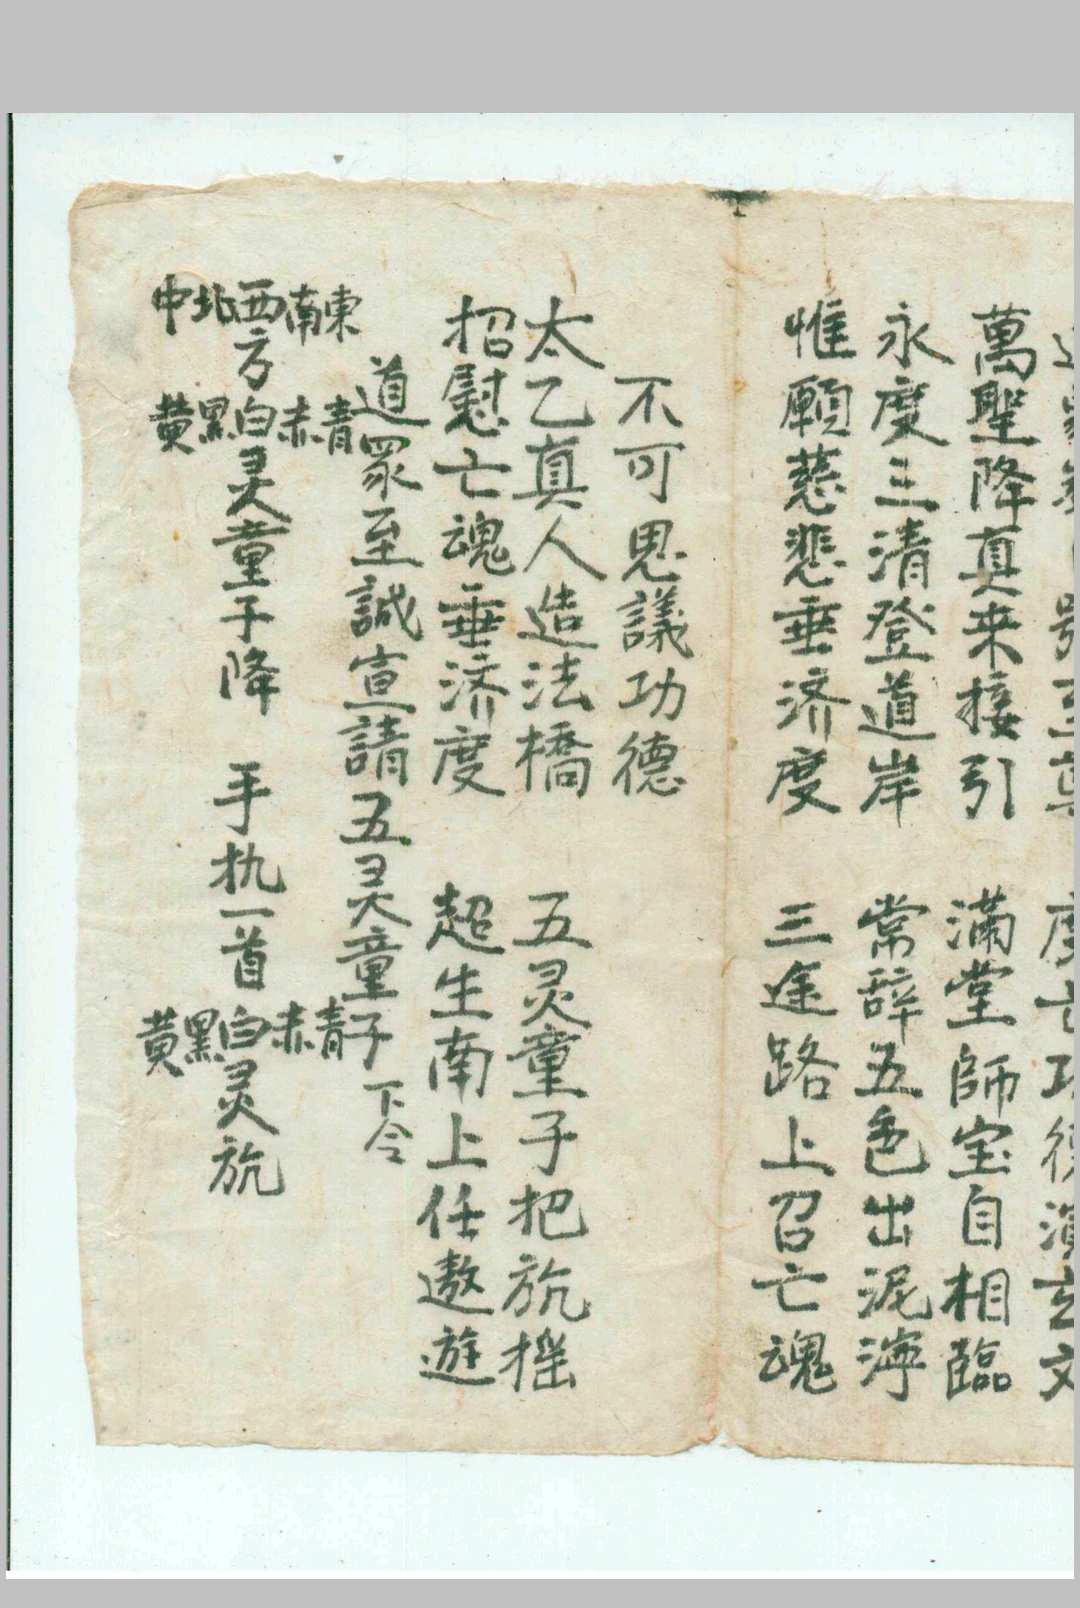 度亡功德演玄文
萬聖降真来接引 滿堂師宝自相臨
永度三清登道岸 常辞五色出泥濘
惟願慈悲垂济度 三途路上召亡魂
不可思議功德
太乙真人造法橋 五灵童子把旊摇
招慰亡魂垂济度 超生南上任遨遊
道眾至誠宣請五灵童子下令
東南西北中方青赤白黑黄灵童子降 手执一首青赤白黑黄灵旊